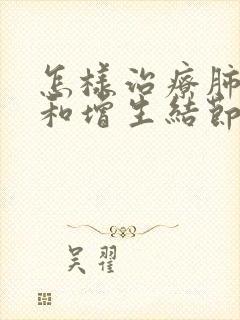 怎樣治療肺
和增生結節
吴翟